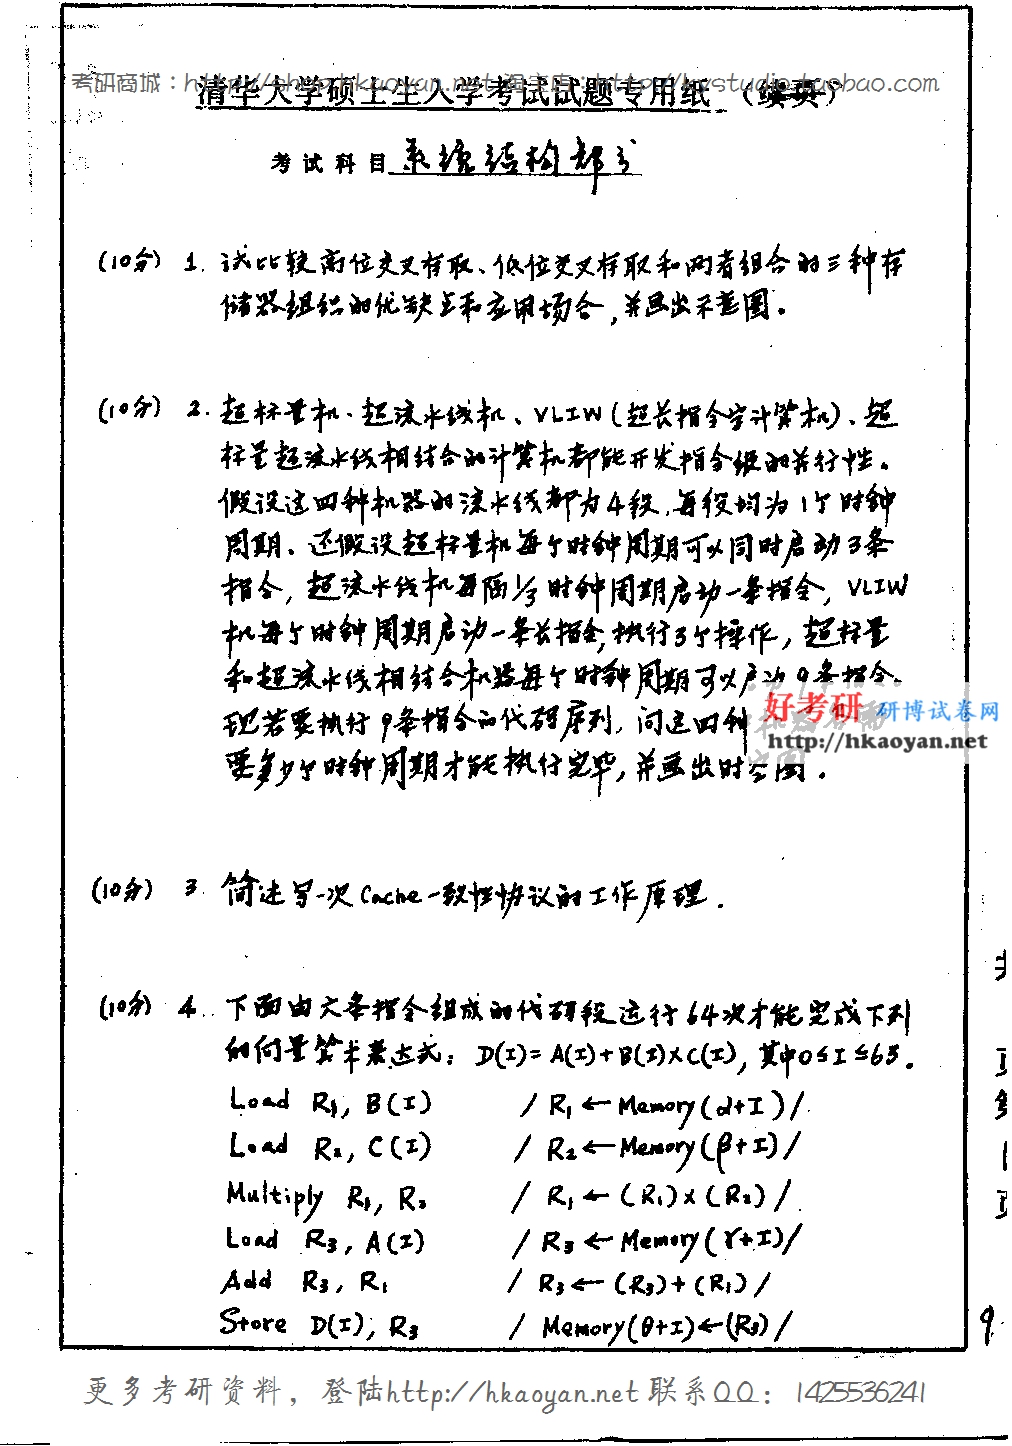 考研商城：http://shop.hkaoyan.net 淘宝店：http://kystudio.taobao.com
清华大学硕士生入学考试试题专用纸 (续页)
考试科目 系统结构部分
(10分) 1. 试比较高位交叉存取、低位交叉存取和两者组合的三种存
储器组织的优缺点和应用场合,并画出示意图。
(10分) 2. 超标量机、超流水线机、VLIW(超长指令字计算机)、超
标量超流水线相结合的计算机都能开发指令级的并行性。
假设这四种机器的流水线都为4段,每段均为1个时钟
周期、还假设超标量机每个时钟周期可以同时启动3条
指令, 超流水线机每隔1/3时钟周期启动一条指令, VLIW
机每个时钟周期启动一条长指令,执行3个操作, 超标量
和超流水线相结合机器每个时钟周期可以启动9条指令.
现若要执行9条指令的代码序列, 问这四种
好考研 研博试卷网
http://hkaoyan.net
要多少个时钟周期才能执行完毕, 并画出时空图.
(10分) 3. 简述写一次Cache一致性协议的工作原理.
(10分) 4. 下面由六条指令组成的代码段运行64次才能完成下列
的向量算术表达式: D(I)=A(I)+B(I)×C(I), 其中0≤I≤63.
Load R₁, B(I) / R₁ ← Memory(α+I) /
Load R₂, C(I) / R₂ ← Memory(β+I) /
Multiply R₁, R₂ / R₁ ← (R₁)×(R₂) /
Load R₃, A(I) / R₃ ← Memory(γ+I) /
Add R₃, R₁ / R₃ ← (R₃)+(R₁) /
Store D(I), R₃ / Memory(θ+I)←(R₃) /
第
页
9
更多考研资料，登陆http://hkaoyan.net 联系QQ：1425536241